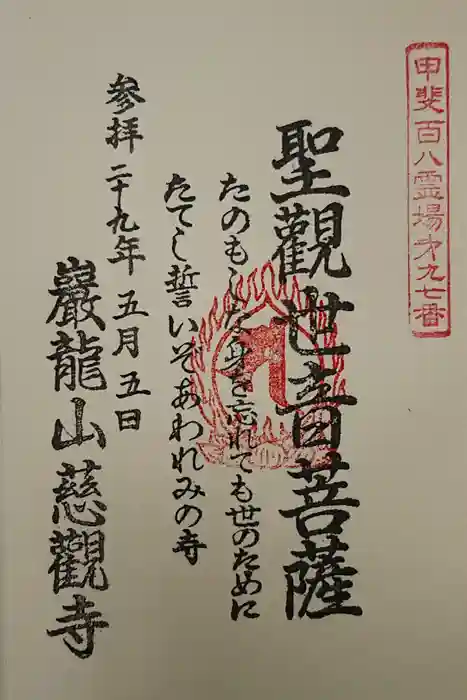 甲斐百八霊場第九七番
聖觀世音菩薩
たのもしな身を忘れても世のために
たてし誓いぞあわれみの寺
参拝 二十九年 五月 五日
巖龍山 慈觀寺